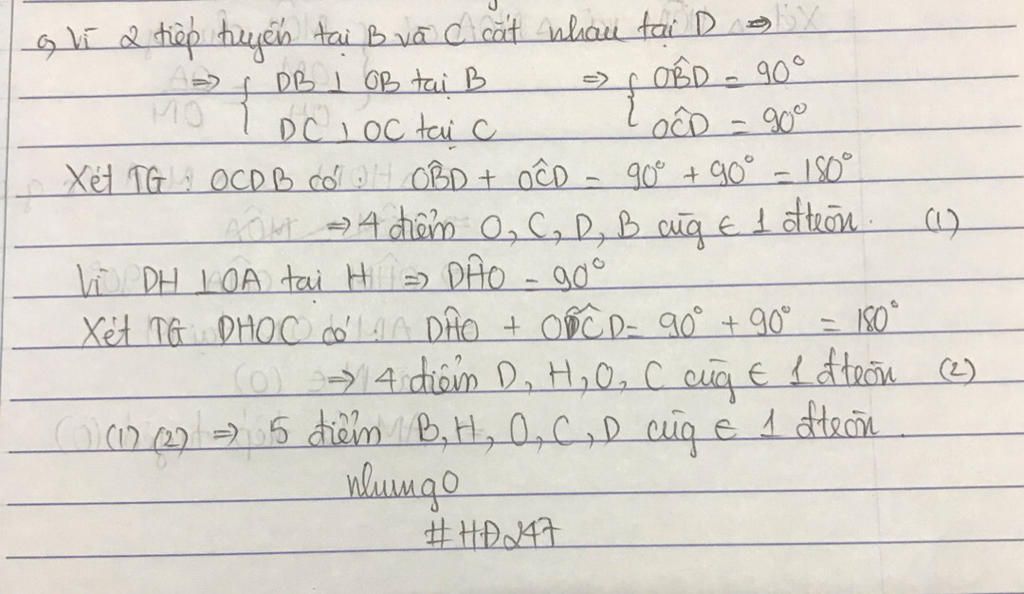 c, Vì 2 tiếp tuyến tại B và C cắt nhau tại D ⇒
⇒ { DB ⊥ OB tại B ⇒ { OB̂D = 90°
DC ⊥ OC tại C OĈD = 90°
Xét TG : OCDB có : OB̂D + OĈD = 90° + 90° = 180°
⇒ 4 điểm O, C, D, B cùg ∈ 1 đtròn. (1)
Vì DH ⊥ OA tại H ⇒ DĤO = 90°
Xét TG DHOC có : DĤO + OĈD = 90° + 90° = 180°
⇒ 4 điểm D, H, O, C cùg ∈ 1 đtròn (2)
(1) (2) ⇒ 5 điểm B, H, O, C, D cùg ∈ 1 đtròn.
nhungo
#HĐ247